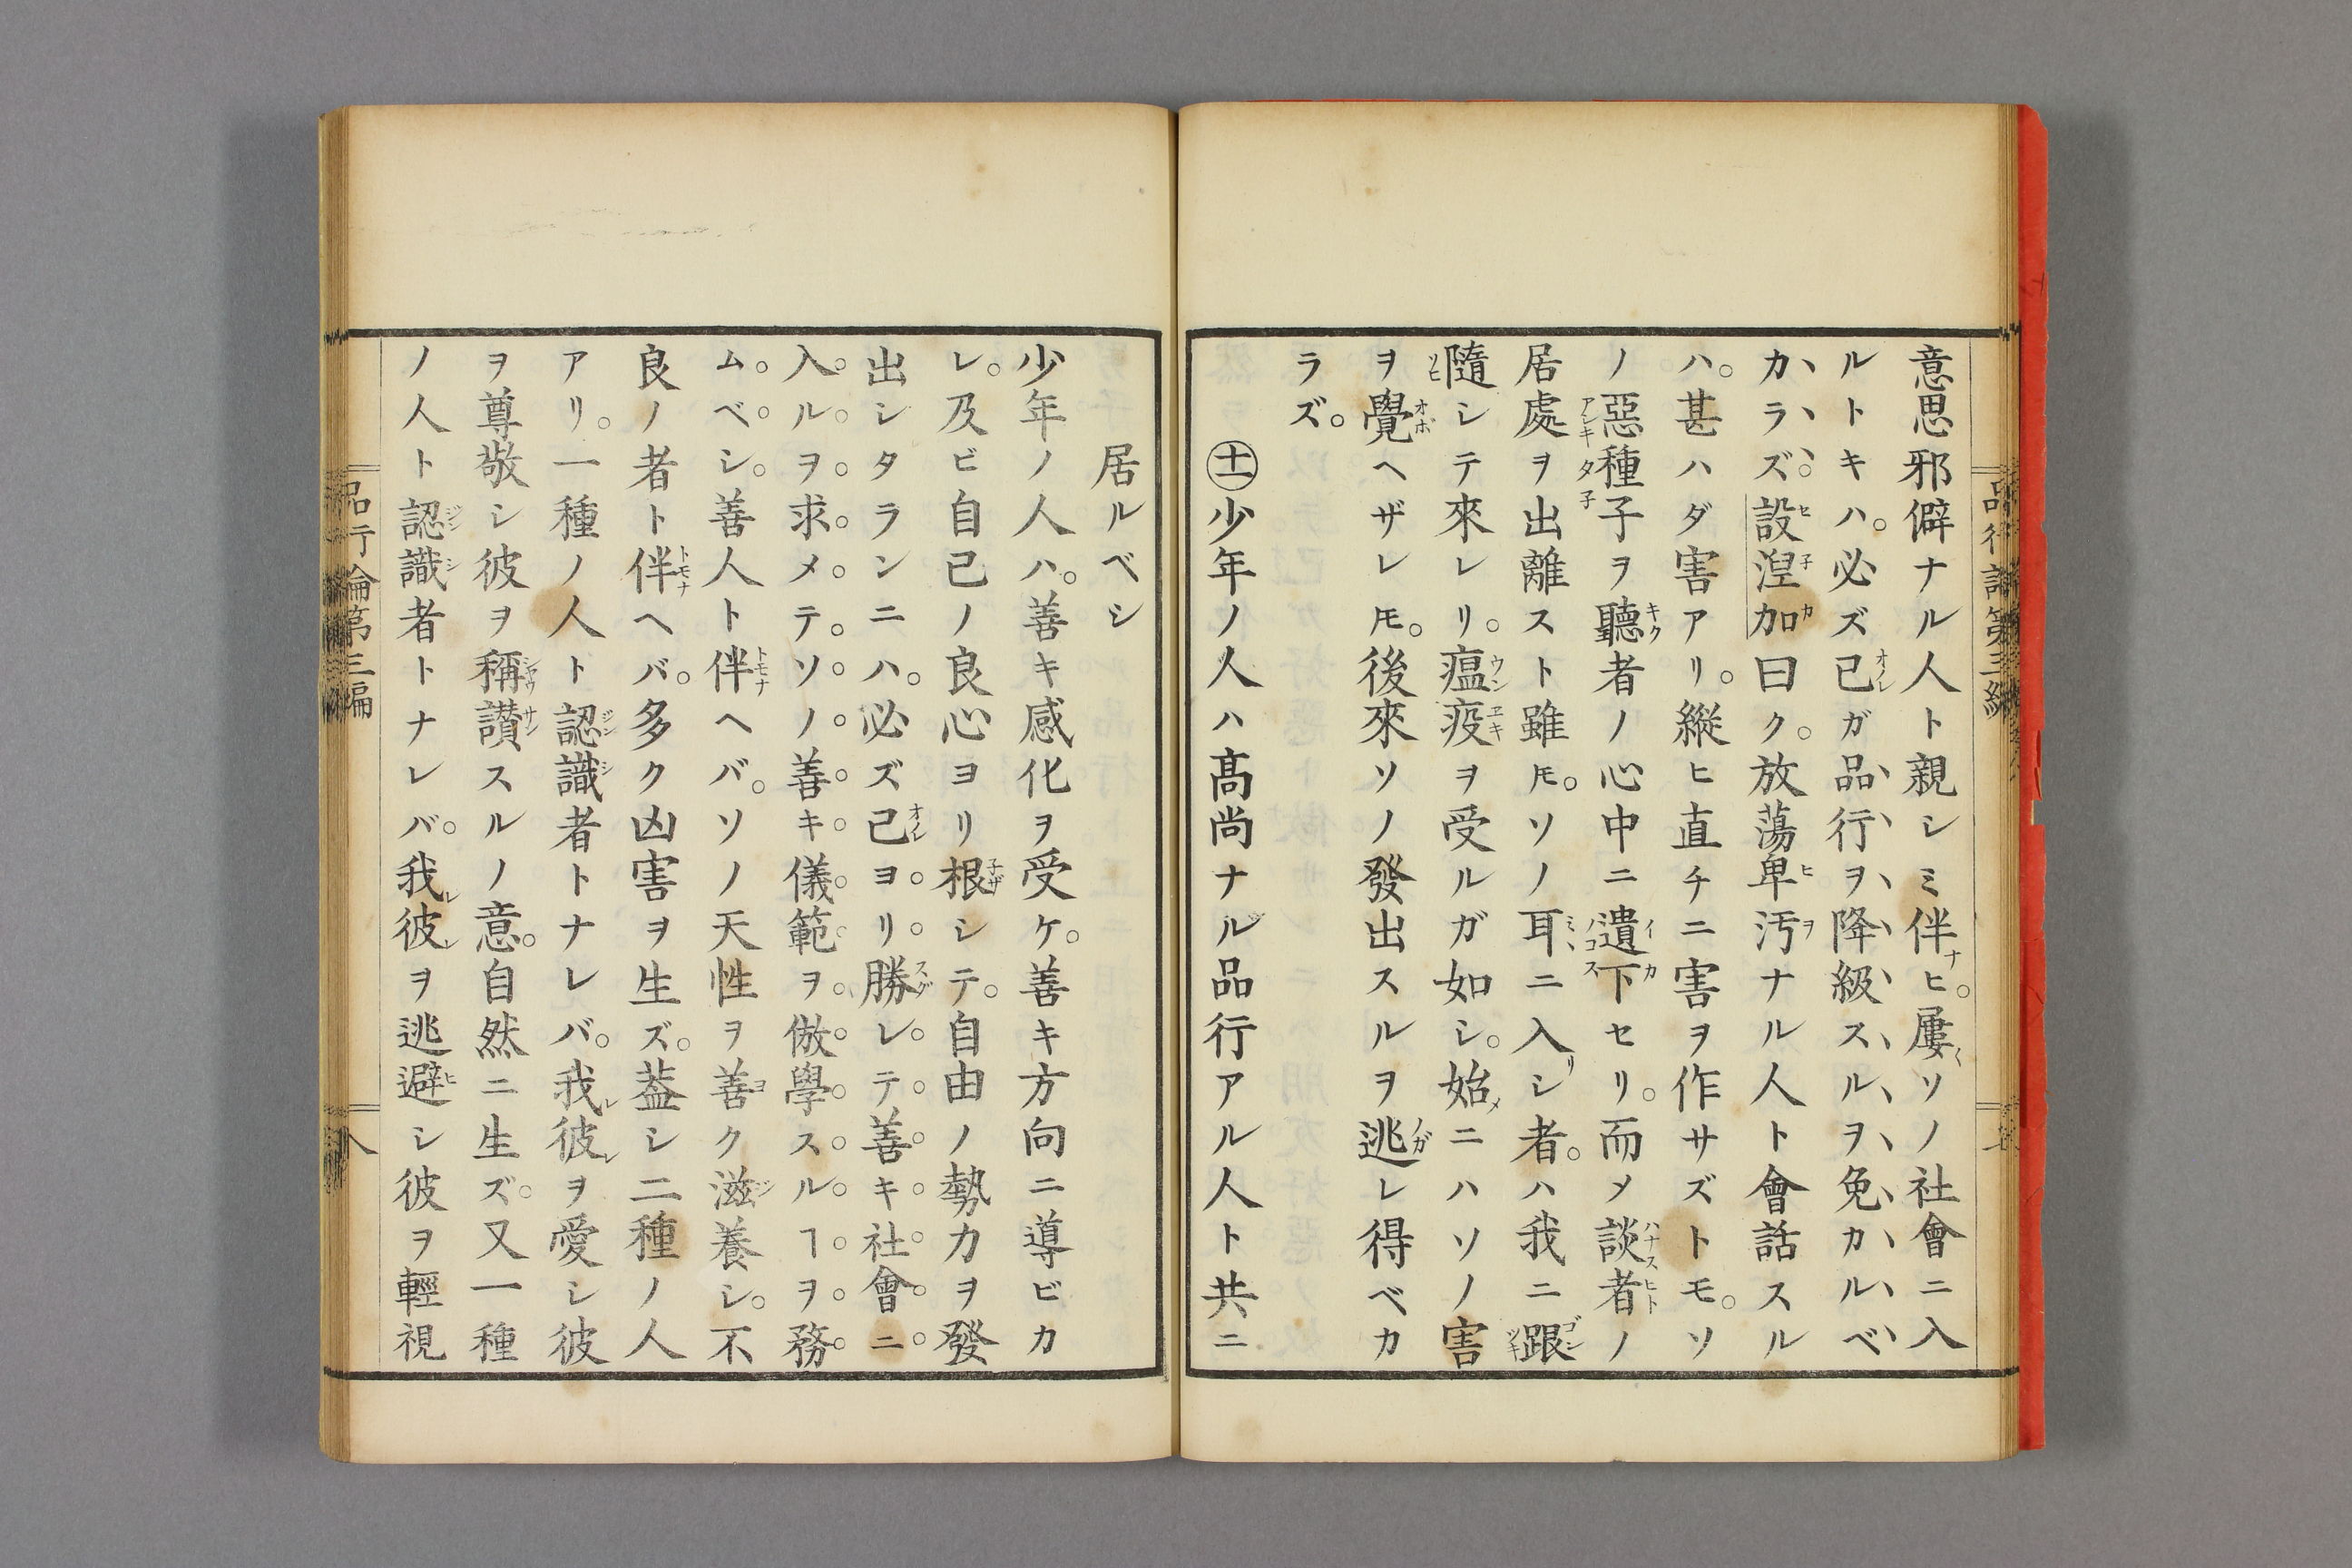 意思邪僻ナル人ト親シミ伴ヒ。屢〱ソノ社會ニ入
ルトキハ。必ズ己ガ品行ヲ降級スルヲ免カルベ
カラズ。設湼加曰ク。放蕩卑汚ナル人ト會話スル
ハ。甚ハダ害アリ。縱ヒ直チニ害ヲ作サズトモ。ソ
ノ惡種子ヲ聽者ノ心中ニ遺下セリ。而メ談者ノ
居處ヲ出離スト雖𪜈。ソノ耳ニ入リシ者。ハ我ニ跟
隨シテ來レリ。瘟疫ヲ受ルガ如シ。始メニハソノ害
ヲ覺ヘザレ𪜈。後來ソノ發出スルヲ逃レ得ベカ
ラズ。
㊉一少年ノ人ハ高尚ナル品行アル人ト共ニ
居ルベシ
少年ノ人ハ。善キ感化ヲ受ケ。善キ方向ニ導ビカ
レ。及ビ自己ノ良心ヨリ根シテ。自由ノ勢力ヲ發
出シタランニハ。必ズ己ヨリ勝レテ善キ社會ニ
入ルヲ求メテソノ善キ儀範ヲ倣學スルヿヲ務
ムベシ。善人ト伴ヘバ。ソノ天性ヲ善ク滋養シ。不
良ノ者ト伴ヘバ。多ク凶害ヲ生ズ。葢シ二種ノ人
アリ。一種ノ人ト認識者トナレバ。我レ彼レヲ愛シ彼
ヲ尊敬シ彼ヲ稱讃スルノ意。自然ニ生ズ。又一種
ノ人ト認識者トナレバ。我レ彼レヲ逃避シ彼ヲ輕視
品行論第三編
八